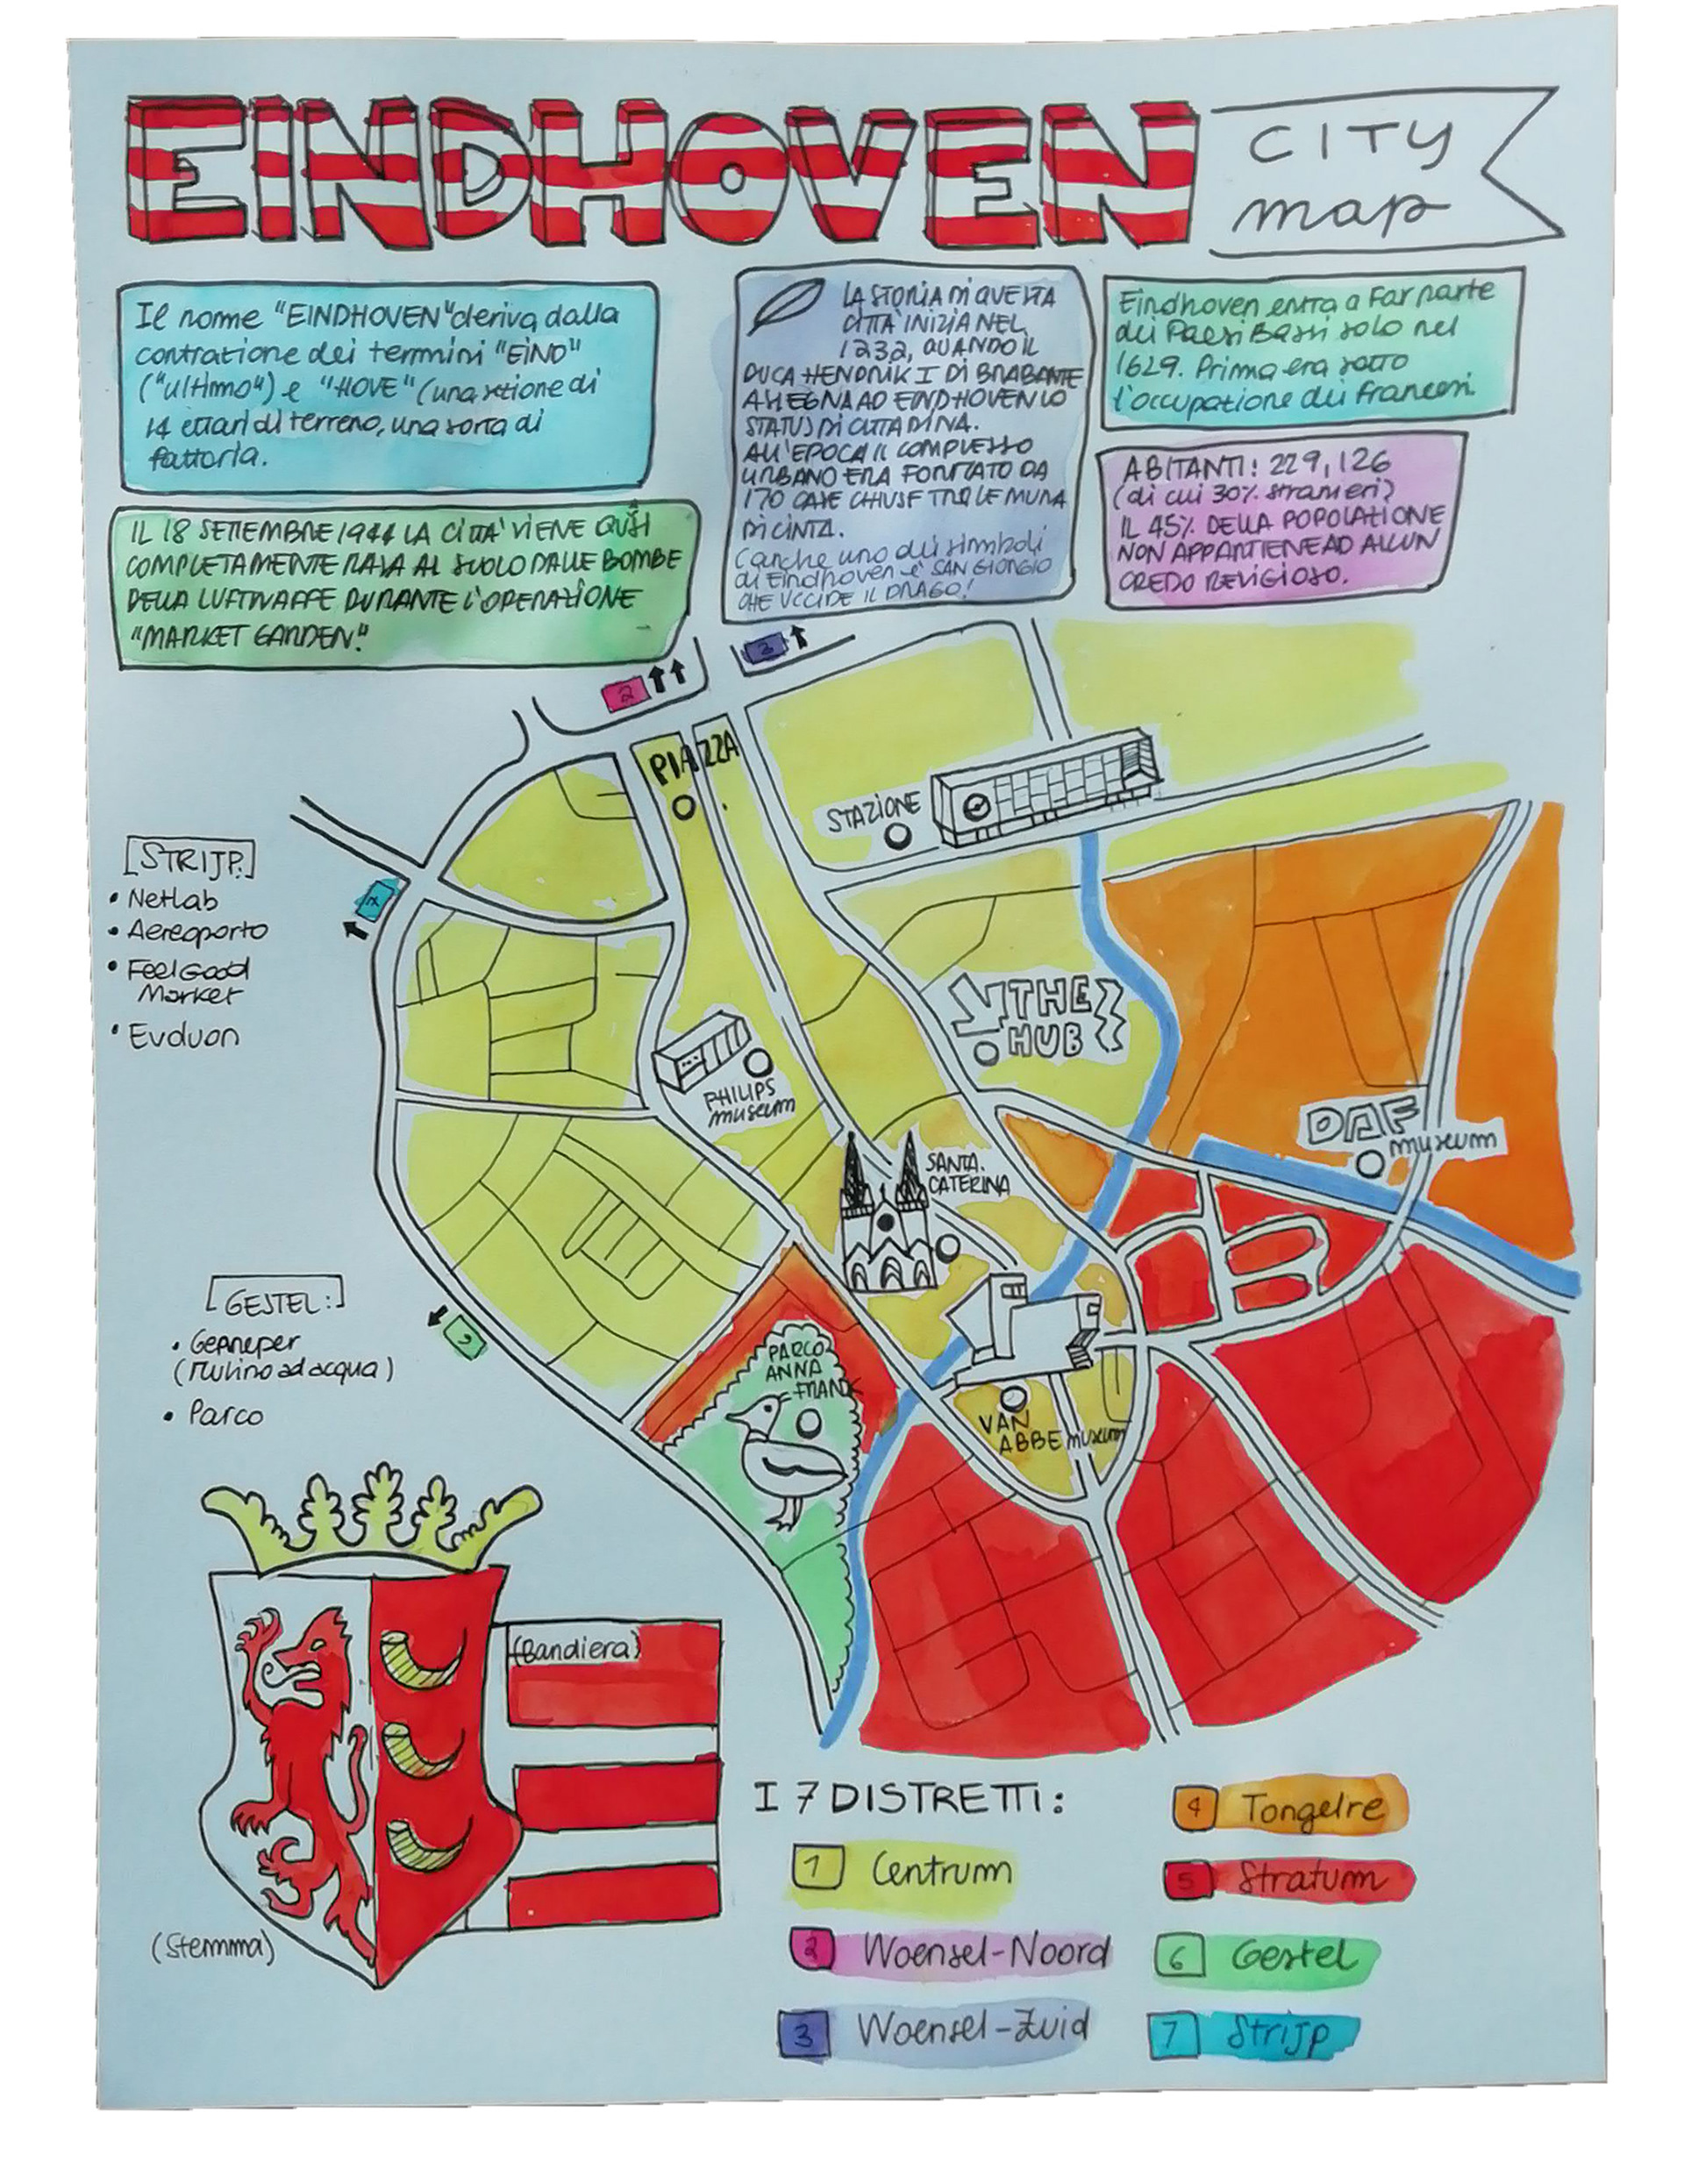 EINDHOVEN
CITY
map
Il nome "EINDHOVEN" deriva dalla
contrazione dei termini "EIND"
("ultimo") e "HOVE" (una sezione di
14 ettari di terreno, una sorta di
fattoria.
IL 18 SETTEMBRE 1944 LA CITTA' VIENE QUASI
COMPLETAMENTE RASA AL SUOLO DALLE BOMBE
DELLA LUFTWAFFE DURANTE L'OPERAZIONE
"MARKET GARDEN."
LA STORIA DI QUESTA
CITTA' INIZIA NEL
1232, QUANDO IL
DUCA HENDRIK I DI BRABANTE
ASSEGNA AD EINDHOVEN LO
STATUS DI CITTADINA.
ALL'EPOCA IL COMPLESSO
URBANO ERA FORMATO DA
170 CASE CHIUSE TRA LE MURA
DI CINTA.
(anche uno dei simboli
di Eindhoven è SAN GIORGIO
CHE UCCIDE IL DRAGO!
Eindhoven entra a far parte
dei Paesi Bassi solo nel
1629. Prima era sotto
l'occupazione dei francesi.
ABITANTI: 229,126
(di cui 30% stranieri)
IL 45% DELLA POPOLAZIONE
NON APPARTIENE AD ALCUN
CREDO RELIGIOSO.
3
2
PIAZZA
STAZIONE
[STRIJP:]
• Netlab
• Aereoporto
• Feel Good
Market
• Evoluon
7
THE
HUB
PHILIPS
museum
DAF
museum
SANTA
CATERINA
[GESTEL:]
• Genneper
(Mulino ad acqua)
• Parco
PARCO
ANNA
FRANK
VAN
ABBE museum
(Bandiera)
(Stemma)
I 7 DISTRETTI:
1 Centrum
2 Woensel-Noord
3 Woensel-Zuid
4 Tongelre
5 Stratum
6 Gestel
7 Strijp